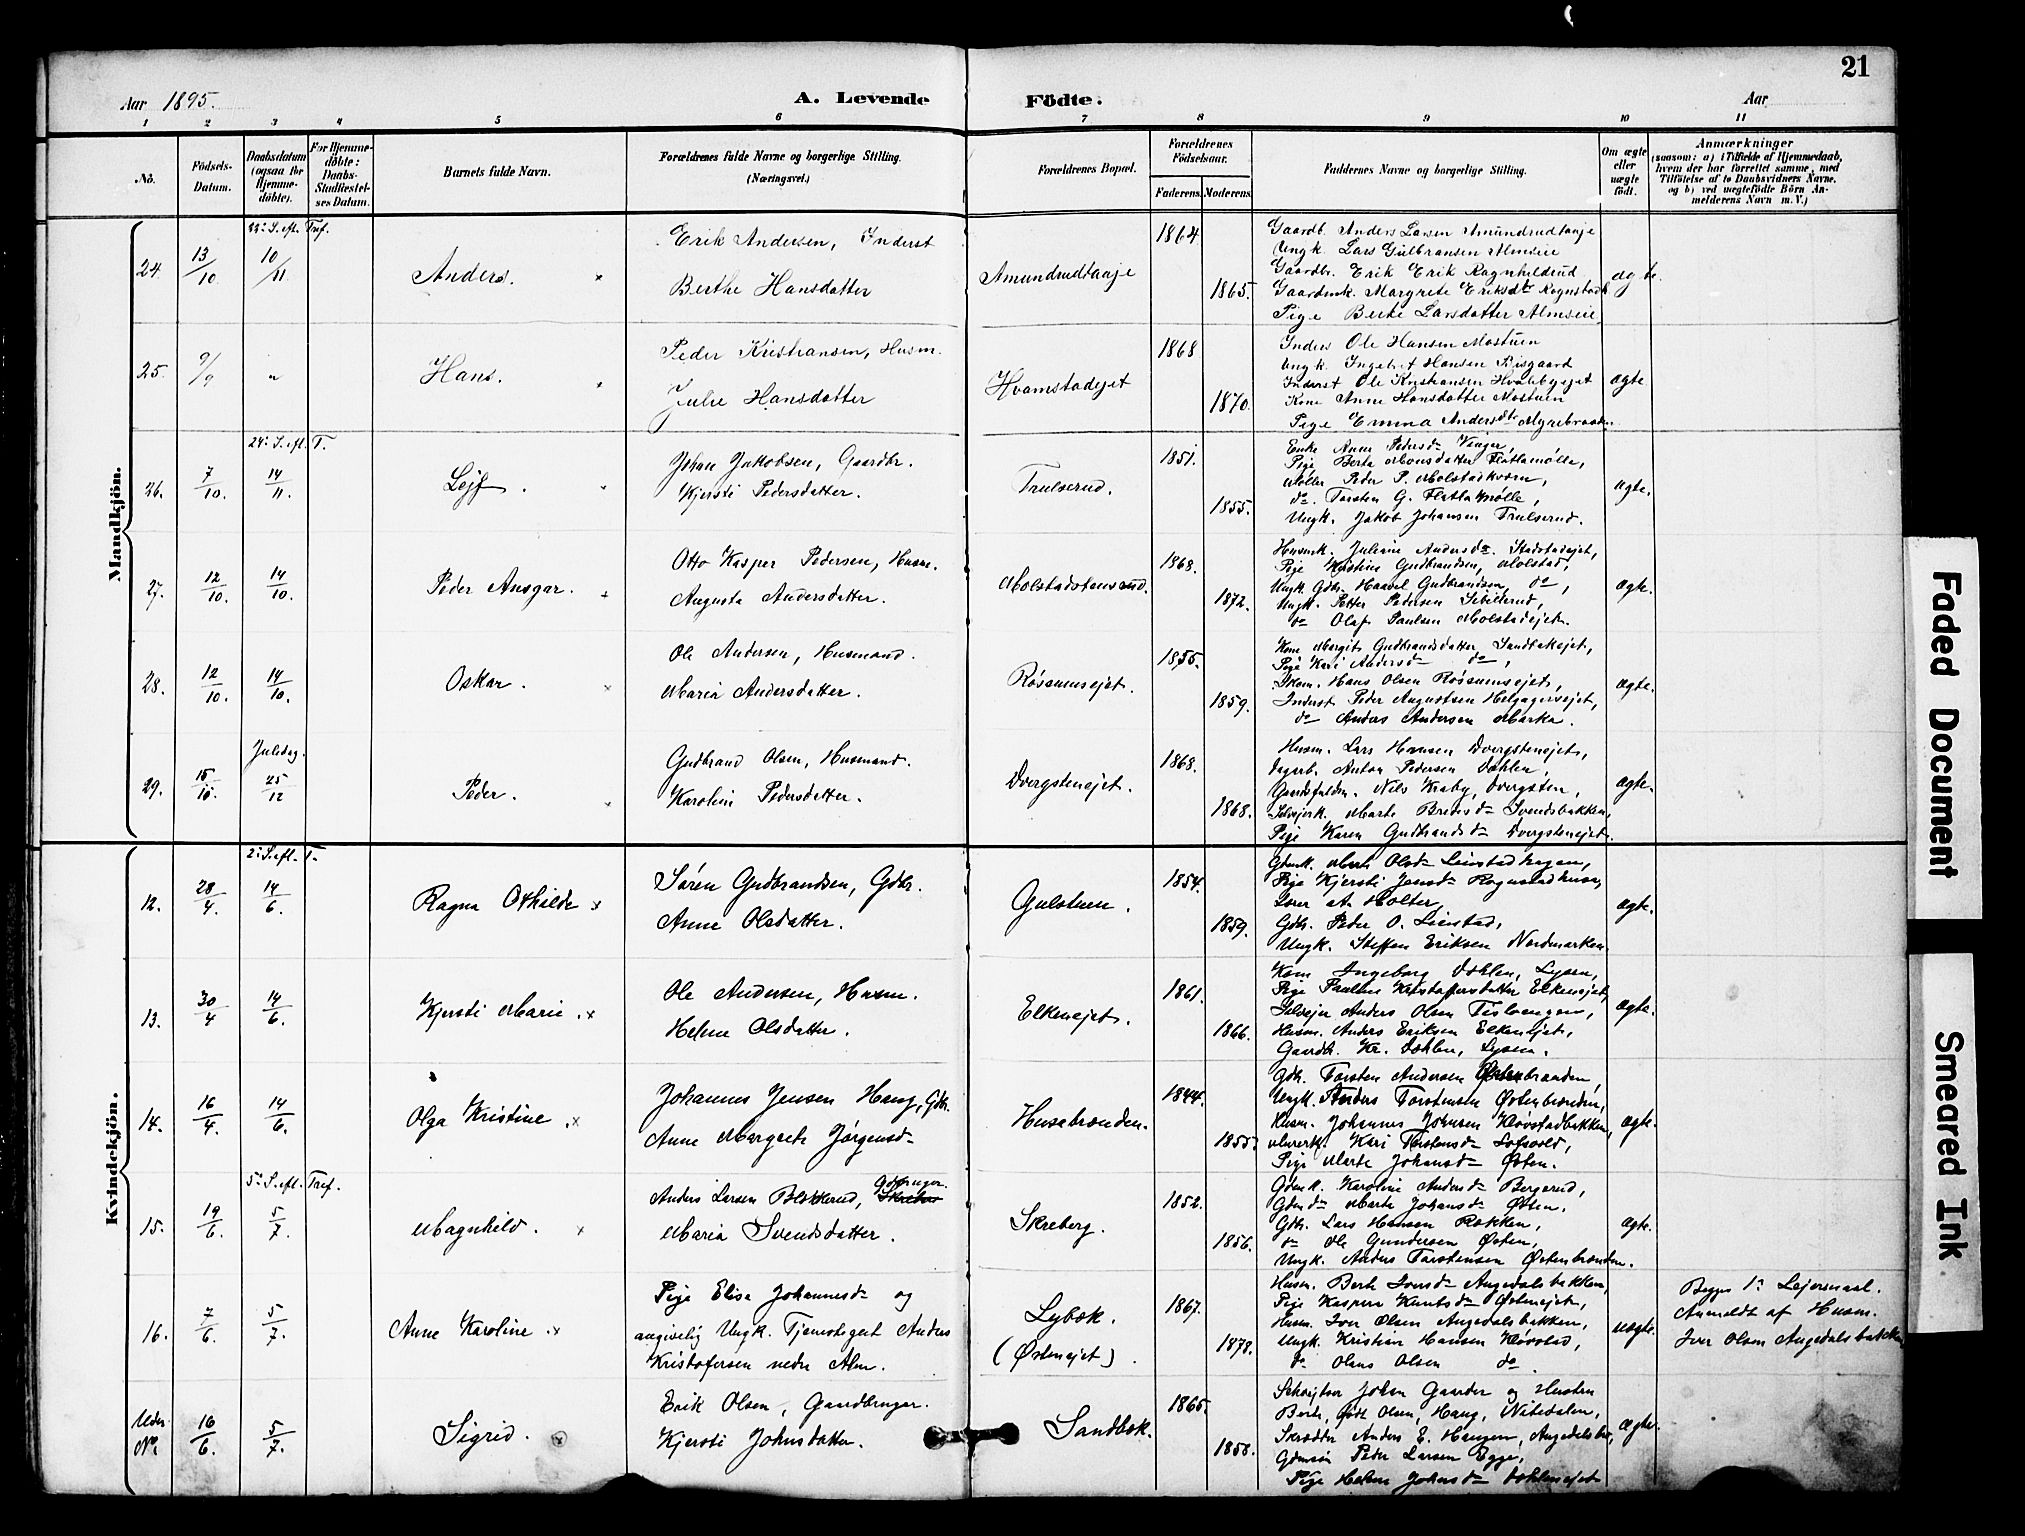 21
Aar 1895.
A. Levende Födte.
Aar
1 2 3 4 5 6 7 8 9 10 11
No.
Födsels-Datum.
Daabsdatum (ogsaa for Hjemme-döbte).
For Hjemme-döbte: Daabs-Stadfæstel-ses Datum.
Barnets fulde Navn.
Forældrenes fulde Navne og borgerlige Stilling. (Næringsvei.)
Forældrenes Bopæl.
Forældrenes Födselsaar.
Faderens. Moderens.
Faddernes Navne og borgerlige Stilling.
Om ægte eller uægte födt.
Anmærkninger
(saasom: a) i Tilfælde af Hjemmedaab, hvem der har forrettet samme, med Tilföielse af to Daabsvidners Navne, og b) ved uægtefödte Börn An-melderens Navn m. V.)
Mandkjön.
24. 13/10 10/11 Anders.
Erik Andersen, Inderst
Berthe Hansdatter
Amundrudtaaje
1864
1865.
Gaardb. Anders Larsen Amundrudtaaje
Ungk. Lars Gulbransen Almseie
Gaardbr. Erik Erik Ragnhildrud
Gaardmk. Margrete Eriksdtr Rognstad
Pige Berte Larsdatter Almseie
ægte.
25. 9/9 " Hans.
Peder Kristiansen, Husm.
Julie Hansdatter
Hvamstadejet
1868
1870.
Inders Ole Hansen Mostuen
Ungk. Ingebret Hansen Risgaard
Inderst Ole Kristiansen Hvalebysjet
Kone Anne Hansdatter Mostuen
Pige Emma Andersdtr Myrebraaten
ægte
24. S. eft. T.
26. 7/10. 14/11. Lejf.
Johan Jakobsen, Gaardbr.
Kjersti Pedersdatter.
Trulserud.
1851.
1855.
Enke Anne Pedersd. Vinger,
Pige Berta Monsdatter Flatlamølle,
Møller Peder P. Molstadkvern,
do. Torsten G. Flatlamølle,
Ungk. Jakob Johansen Trulserud.
ægte.
27. 12/10. 14/10. Peder Ansgar.
Otto Kasper Pedersen, Husm.
Augusta Andersdatter.
Molstadstensrud.
1868.
1872.
Husmk. Juliane Andersd. Stadstadejet,
Pige Kristine Gudbrandsen, Molstad,
Ungk. Gdbr. Haavel Gudbrandsen, do,
Ungk. Petter Pedersen Sibillerud,
do Olaf Paulsen Molstadejet.
ægte.
28. 12/10. 14/10. Oskar.
Ole Andersen, Husmand.
Maria Andersdatter.
Røsumsejet.
1855.
1859.
Kone Margit Gudbrandsdatter, Sandbaksjet,
Pige Kari Andersd do,
Skom. Hans Olsen Røsumsejet,
Inderst Peder Augustsen Helgagersejet,
do Anders Andersen Marka.
ægte.
Juledag.
29. 15/10. 25/12 Peder.
Gudbrand Olsen, Husmand.
Karoline Pedersdatter.
Dvergstenejet.
1868.
1868.
Husm. Lars Hansen Dvergstenejet,
Dagarb. Anton Pedersen Dæhlen,
Gaardsfuldm. Nils Kraby, Dvergsten,
Selvejerk. Marte Bredesd Svendsbakken,
Pige Karen Gudbrandsd Dvergstenejet.
ægte.
Kvindekjön.
2. S. eft. T.
12. 28/4. 14/6. Ragna Othilde x
Søren Gudbrandsen, Gdbr.
Anne Olsdatter.
Gulstuen.
1854.
1859.
Gdmk. Marte Olsd Leinstadhagen,
Pige Kjersti Jensd Rognstadhusa,
Iver at. Holter,
Gdbr. Peder O. Leinstad,
Ungk. Steffen Eriksen Nordmarken.
ægte.
13. 30/4 14/6. Kjersti Marie. x
Ole Andersen, Husm.
Helene Olsdatter.
Elkenejet.
1861.
1866.
Kone Ingeborg Dæhlen, Lysen,
Pige Pauline Kristofersdatter Elkenejet,
Selvejer Anders Olsen Tislaugen,
Husm. Anders Eriksen Elkenejet,
Gaardb. Kr. Dæhlen, Lysen.
ægte.
14. 16/4. 14/6. Olga Kristine. x
Johannes Jensen Haug, Gdbr.
Anne Margrete Jørgensd
Husebrænden.
1844.
1855.
Gdbr. Torsten Andersen Østenbrænden,
Ungk. Anders Torstensen Østenbrænden,
Husm. Johannes Johnsen Kløvstadbakken,
Murerk. Kari Torstensd Lofsvold,
Pige Marte Johansd Østen.
ægte.
5. S. eft. Tref.
15. 19/6. 5/7. Magnhild. x
Anders Larsen Blekkerud, Gdbruger.
Maria Svendsdatter.
Skreberg.
1852.
1856.
Gdmk. Karoline Andersd Bergerud,
Gdmd Marte Johansd Østen,
Gdbr. Lars Hansen Røkken,
do Ole Gundersen Østen,
Ungk. Anders Torstensen Østenbrænden.
ægte.
16. 7/6. 5/7. Anne Karoline. x
Pige Elise Johannesd og
angivelig Ungk. Tjenestegut Anders
Kristofersen nedre Alm.
Lybæk.
(Østenejet).
1867.
1878.
Husm. Berte Iversd Augedalsbakken,
Pige Kaspara Knutsd Østenejet,
Husm. Iver Olsen Augedalsbakken,
Ungk. Kristian Hansen Kløvstad,
do Olaus Olsen do
uægte.
Begges 1ste Lejermaal.
Anmeldt af Husm.
Iver Olsen Augedalsbakken
Uden No. 16/6. 5/7. Sigrid. x
Erik Olsen, Gaardbruger.
Kjersti Johnsdatter.
Sandbæk.
1865.
1858.
Johan Gaarder og Hustru
Berte, født Olsen, Haug, Nitedalen,
Skrædder Anders E. Haugen, Augedalsbr.,
Gdmsøn Peder Larsen Egge,
Pige Helene Johansd Dæhlenejet
ægte.
Faded Document
Smeared Ink